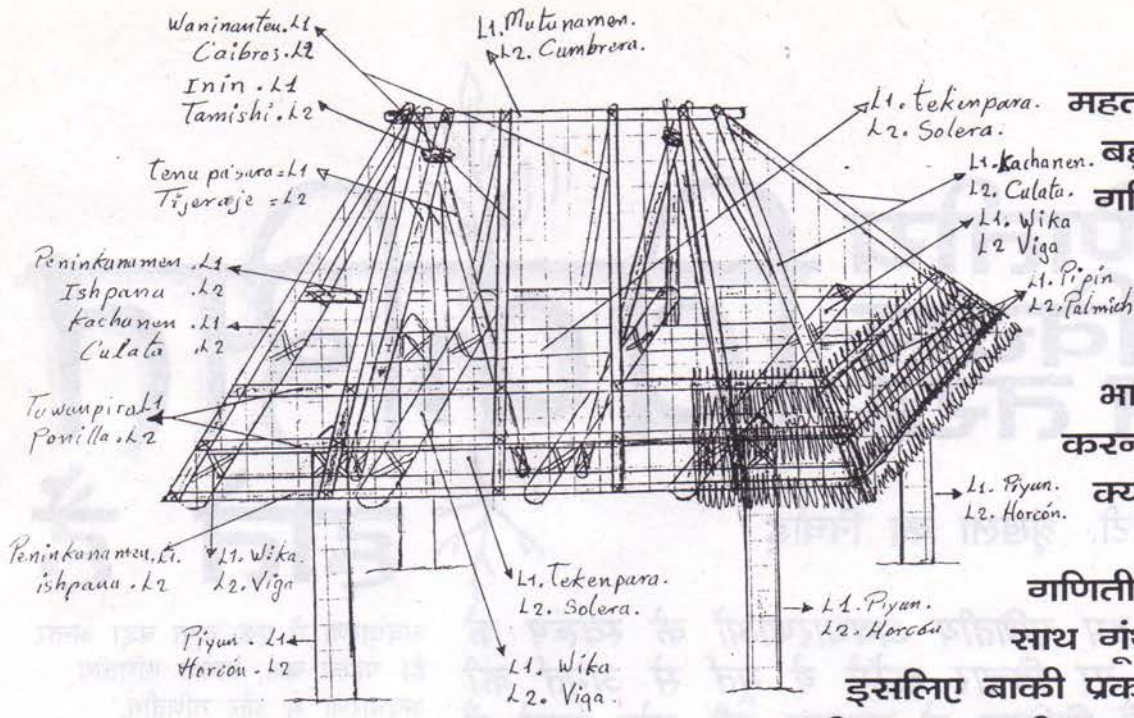 Waninanteu. L1
Caibros. L2
Inin. L1
Tamishi. L2
tenu pa'sura = L1
Tijeraje = L2
Peninkanamen. L1
Ishpana. L2
Kachanen. L1
Culata. L2
Tuwanpira L1
Ponilla. L2
Peninkanamen. L1.
ishpana. L2
L1. Wika.
L2. Viga
Piyun. L1
Horcón. L2
L1. Mutunamen.
L2. Cumbrera.
L1. tekenpara.
L2. Solera.
L1. Kachanen.
L2. Culata.
L1. Wika
L2 Viga
L1. Pipin
L2. Palmich
L1. Piyun.
L2. Horcón.
L1. Tekenpara.
L2. Solera.
L1. Piyun.
L2. Horcón
L1. Wika
L2. Viga.
महत
बह
गि
भा
करन
क्य
गणिती
साथ गूं
इसलिए बाकी प्रक